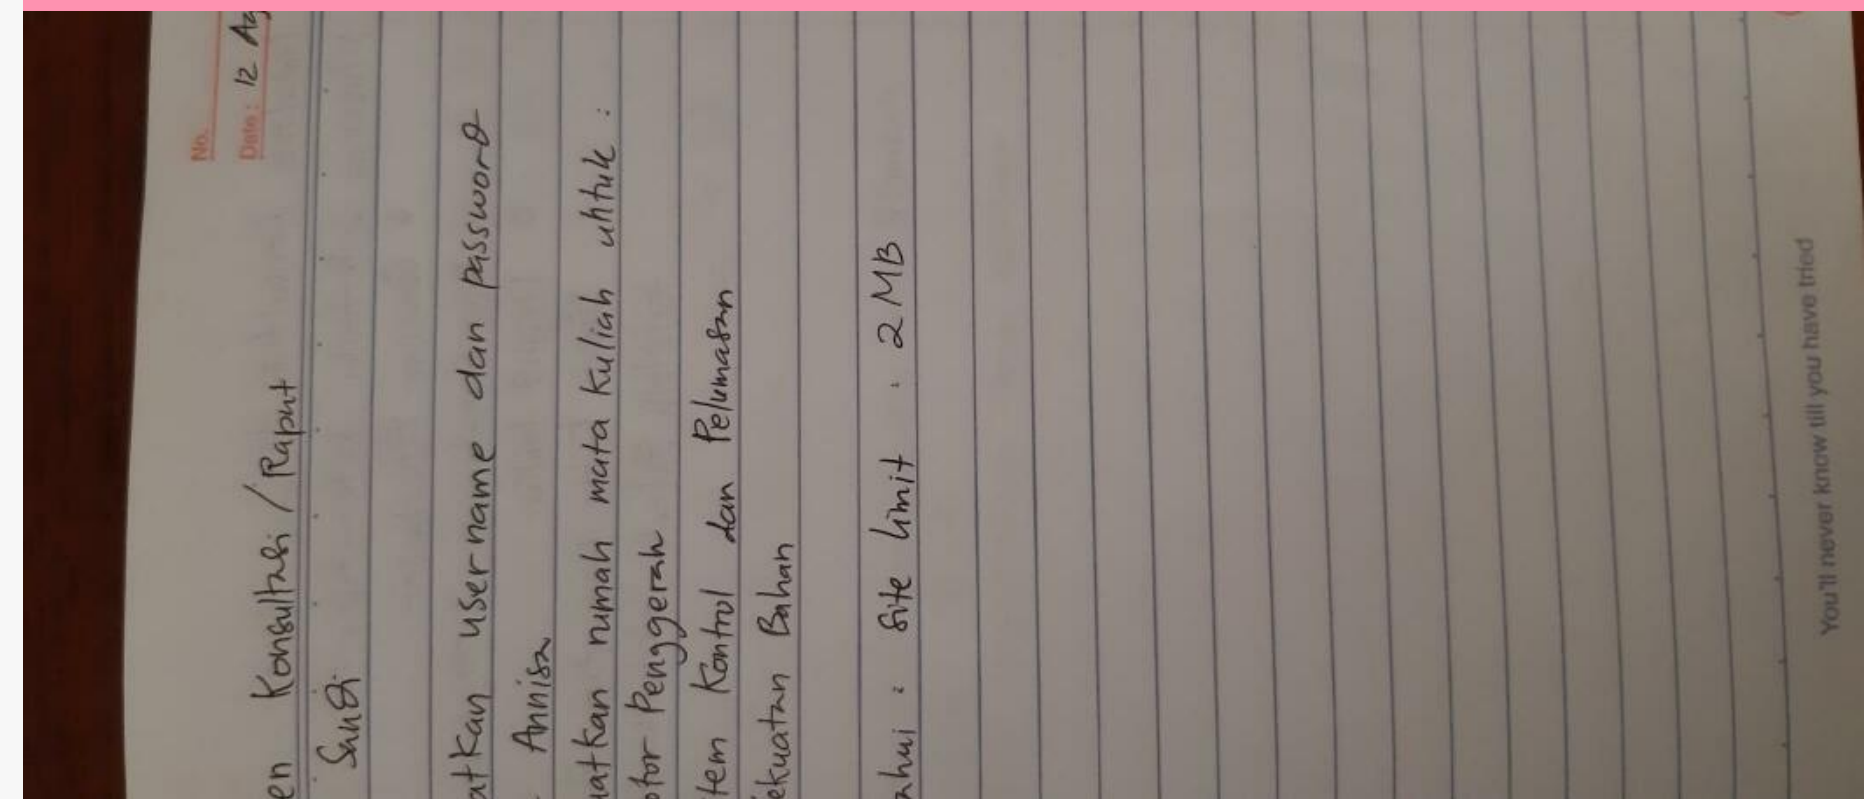 No.
Date : 12 Ag
en Konsultasi / Raput
Sandi
atkan username dan password
Annisa
uatkan rumah mata kuliah untuk :
otor Penggerak
tem Kontrol dan Pelumasan
ekuatan Bahan
ahui : Site limit : 2 MB
You'll never know till you have tried